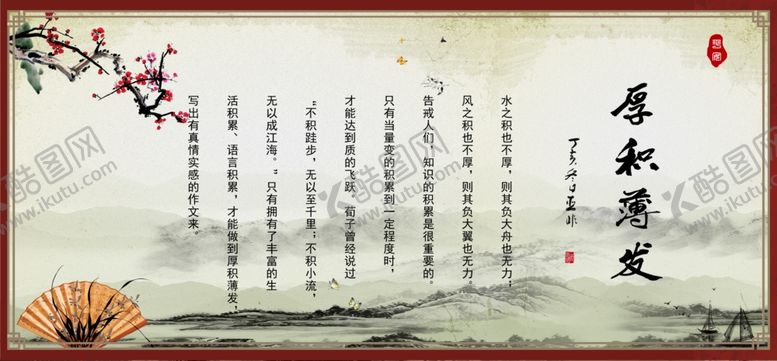 厚积薄发
丁亥冬日亚非
水之积也不厚，则其负大舟也无力；
风之积也不厚，则其负大翼也无力。
告戒人们，知识的积累是很重要的。
只有当量变的积累到一定程度时，
才能达到质的飞跃 荀子曾经说过
“不积跬步，无以至千里；不积小流，
无以成江海。”只有拥有了丰富的生
活积累、语言积累，才能做到厚积薄发，
写出有真情实感的作文来。
酷图网
www.ikutu.com
酷图网
www.ikutu.com
酷图网
www.ikutu.com